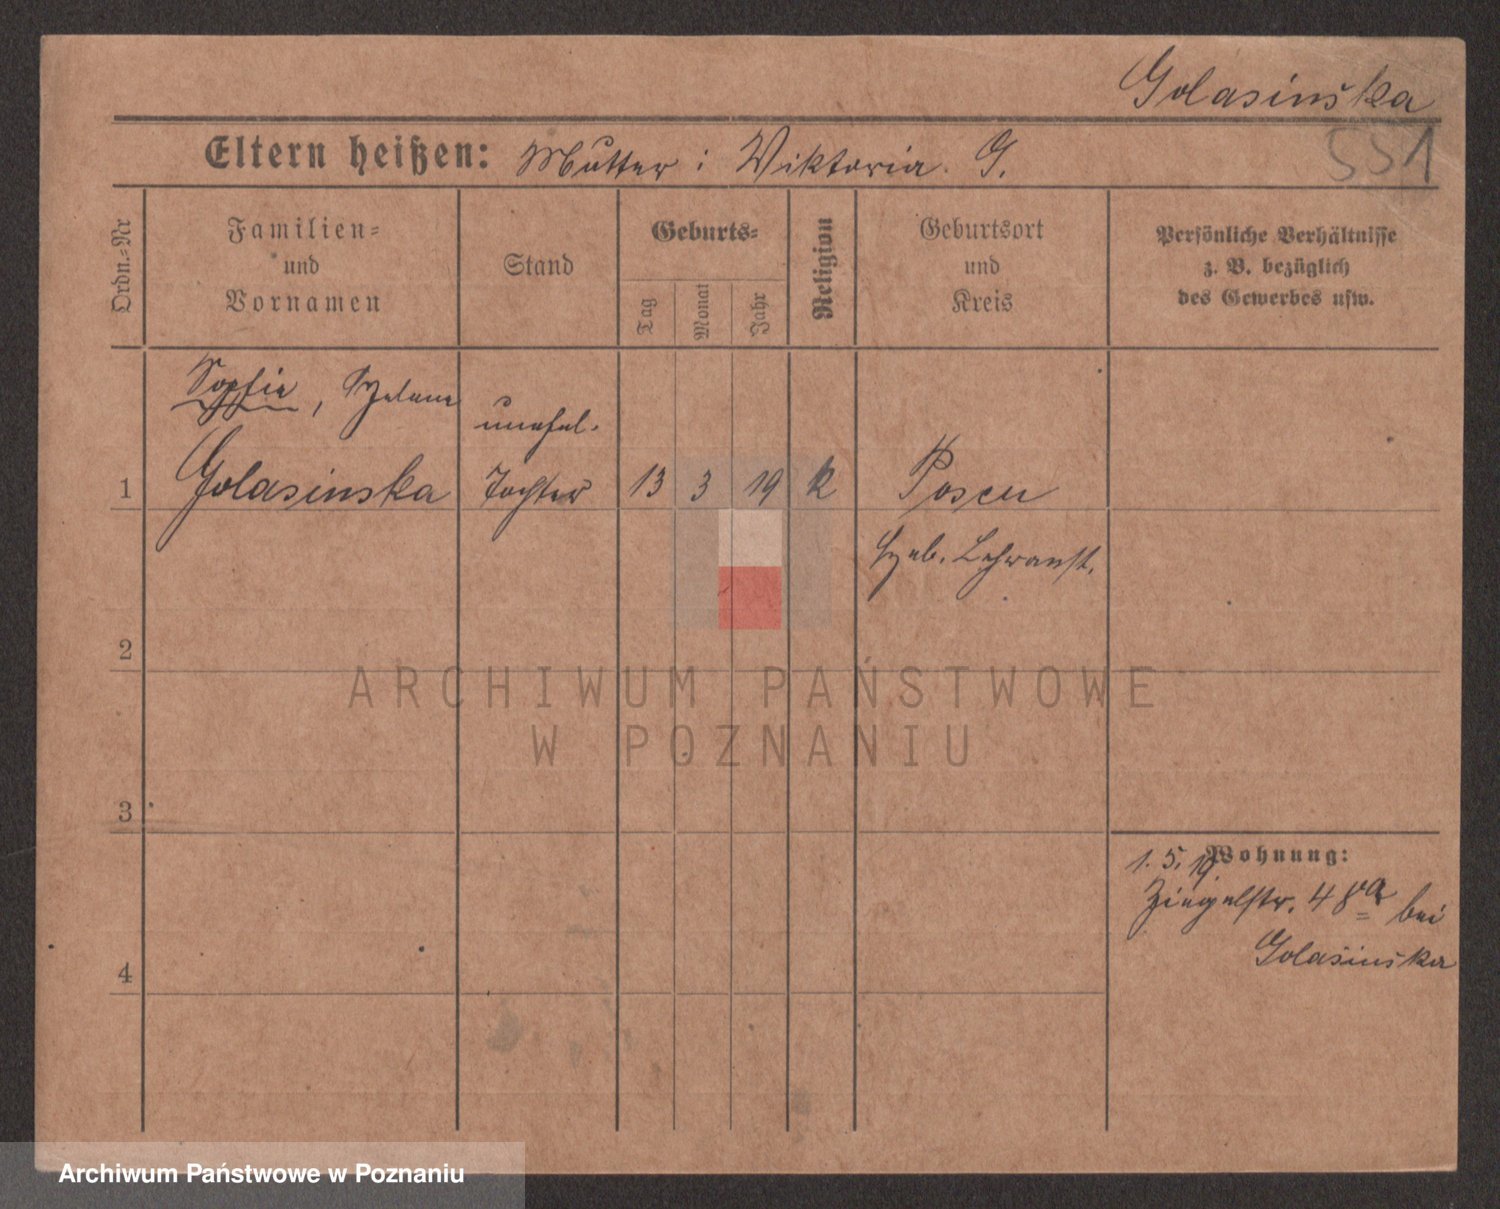 Golasinška
551
Eltern heißen: Mutter: Wiktoria G.
Ordn.=Nr
Familien=
und
Vornamen
Stand
Geburts=
Tag
Monat
Jahr
Religion
Geburtsort
und
Kreis
Persönliche Verhältnisse
z. B. bezüglich
des Gewerbes usw.
Sophie, Helene
unehel.
1 Golasinska Tochter 13 3 19 k Posen
Heb. Lehranst.
2
ARCHIWUM PAŃSTWOWE
W POZNANIU
3
Wohnung:
1. 5. 19.
Ziegelstr. 48a bei
Golasinška
4
Archiwum Państwowe w Poznaniu